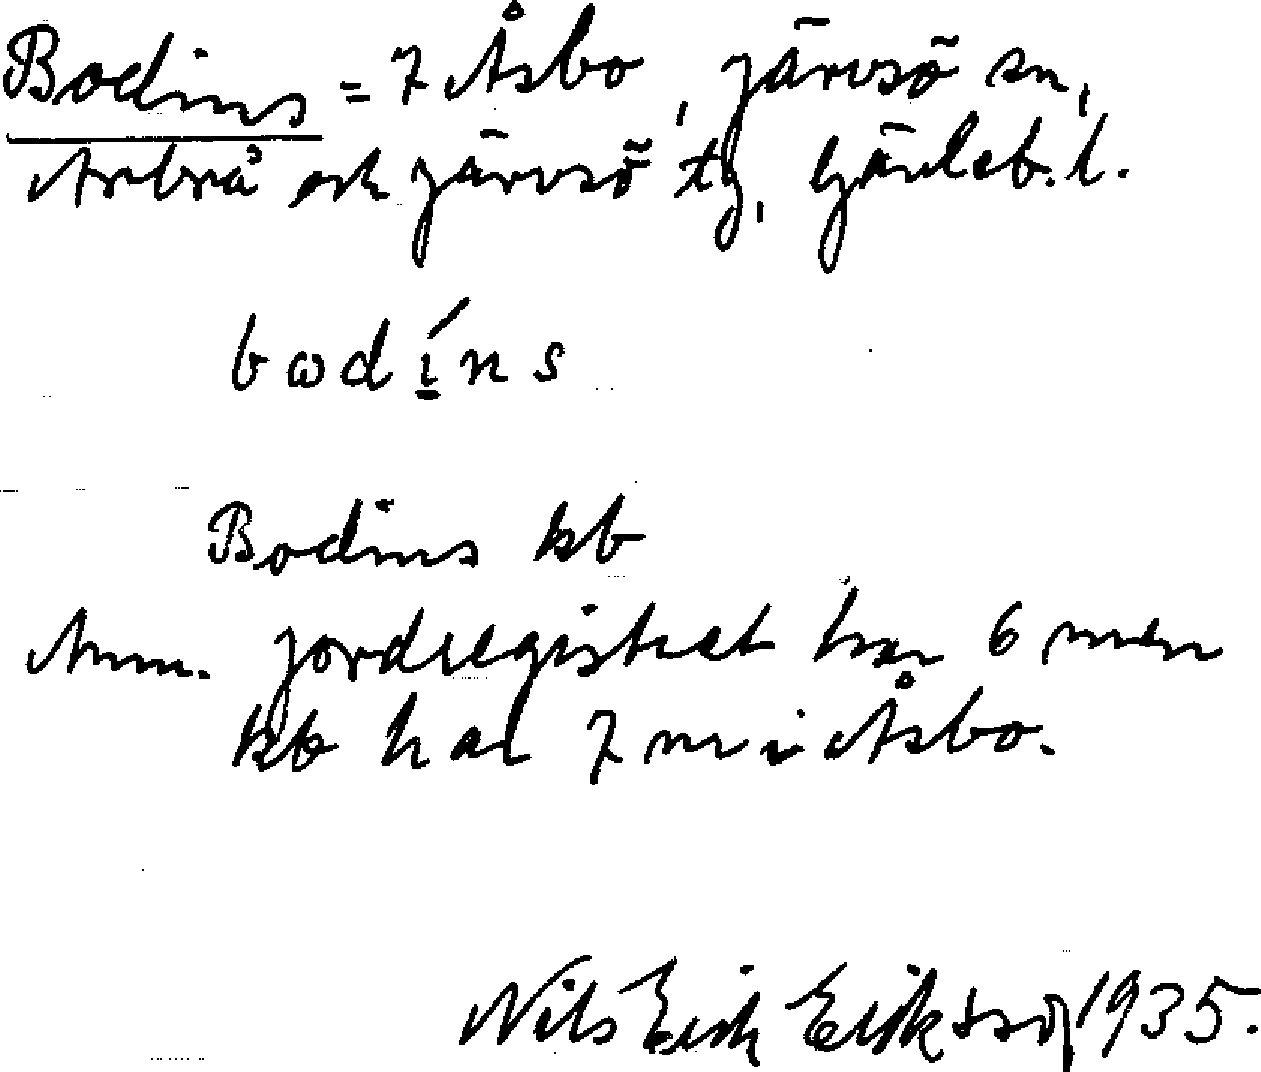 Bodins = 7 Åsbo, Järvsö sn,
Arbrå och Järvsö tg, Gävleb. l.
bωdí̱ns
Bodins kb
Anm. Jordregistret har 6 men
kb har 7 nr i Åsbo.
Nils Erik Eriksson 1935.